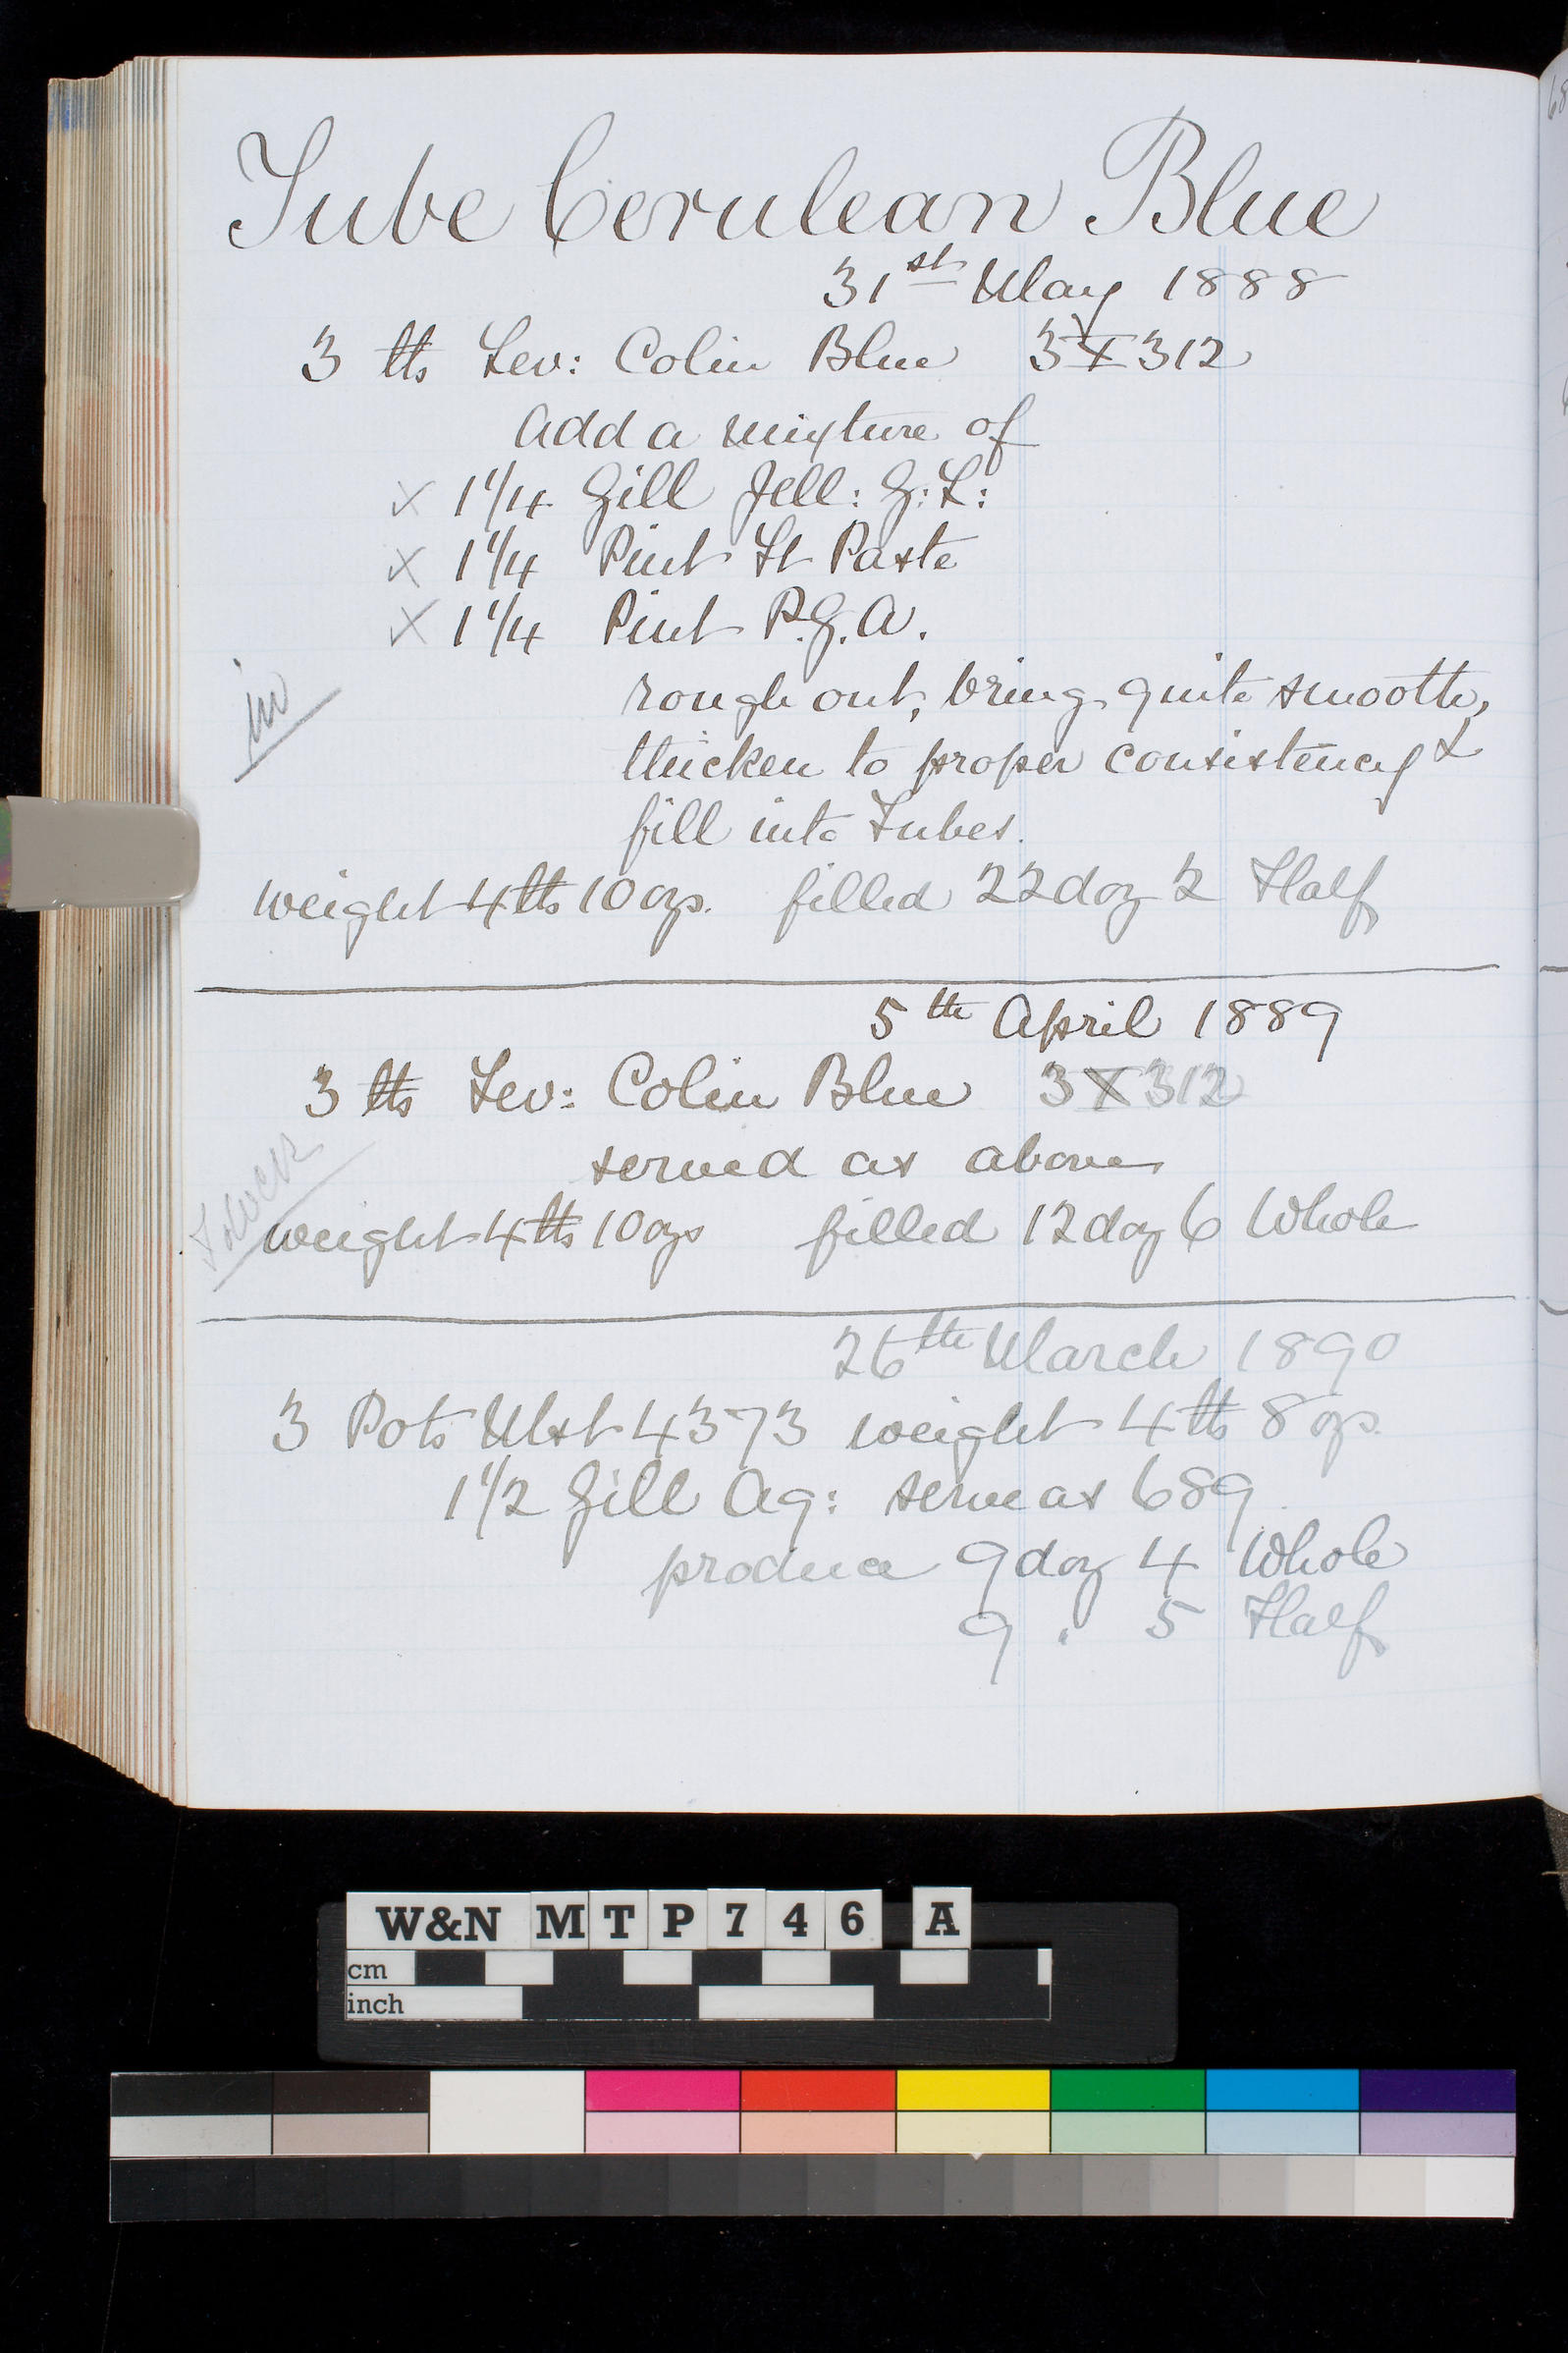 Tube Cerulean Blue
31st May 1888
3 lbs Lev: Colin Blue 3X312
Add a mixture of
x 1 1/4 Gill Jell: G: L:
x 1 1/4 Pint St Paste
x 1 1/4 Pint P.G.A.
in
rough out, bring quite smooth,
thicken to proper consistency &
fill into Tubes.
weight 4 lbs 10 ozs. filled 22 doz 2 Half
5th April 1889
3 lbs Lev: Colin Blue 3X312
served as above
Stock
weight 4 lbs 10 ozs filled 12 doz 6 Whole
26th March 1890
3 Pots Mst 4373 weight 4 lbs 8 ozs.
1 1/2 Gill Aq: serve as 689
produce 9 doz 4 Whole
9 . 5 Half
W&N MTP746 A
cm
inch